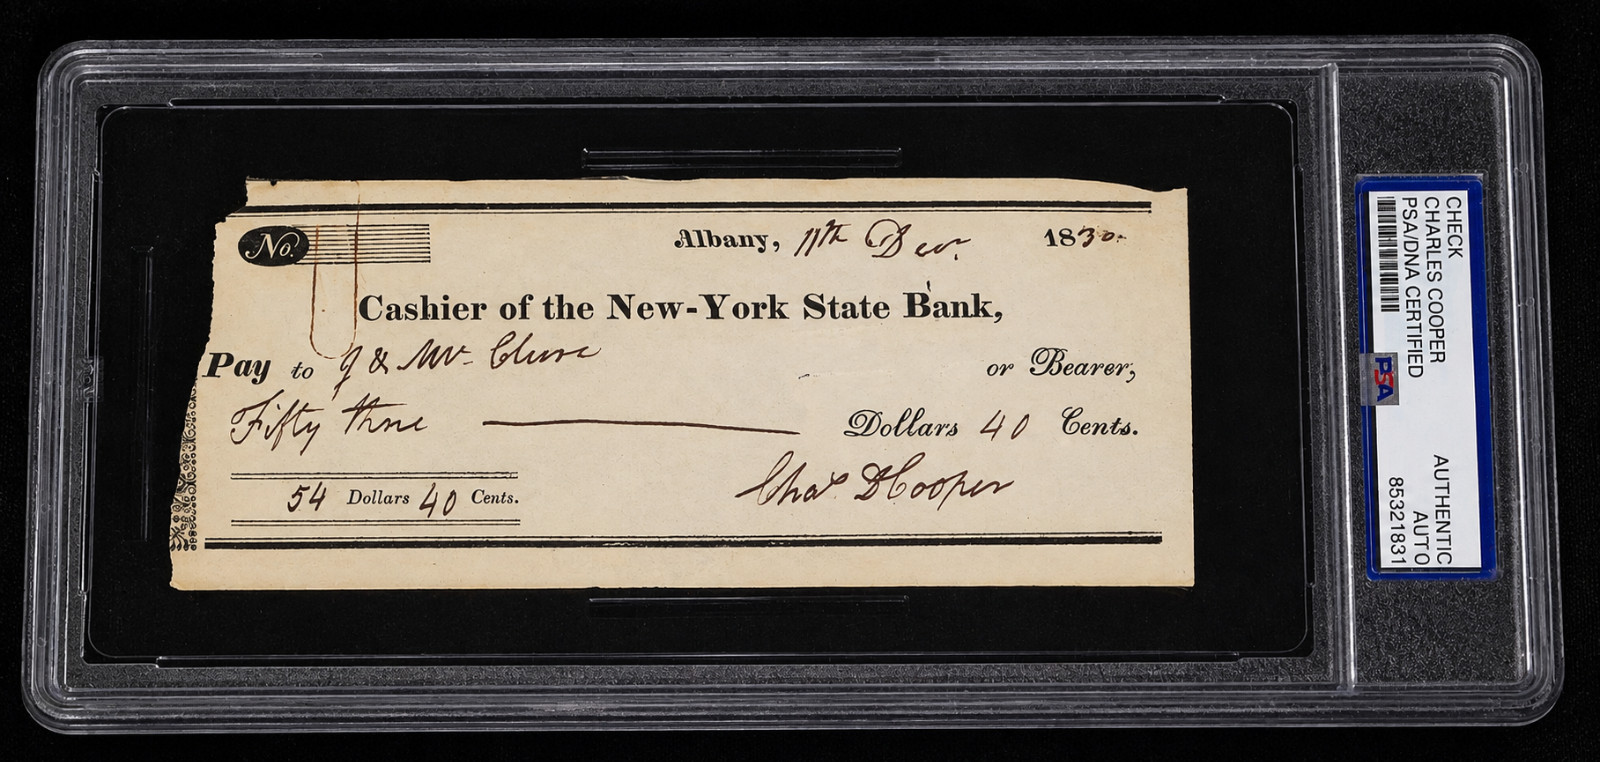 No.
Albany, 11th Decr. 1830.
Cashier of the New-York State Bank,
Pay to J & Mc. Clure or Bearer,
Fifty three Dollars 40 Cents.
54 Dollars 40 Cents.
Chas. D Cooper
CHECK
CHARLES COOPER
PSA/DNA CERTIFIED
AUTHENTIC
AUTO
85321831
PSA